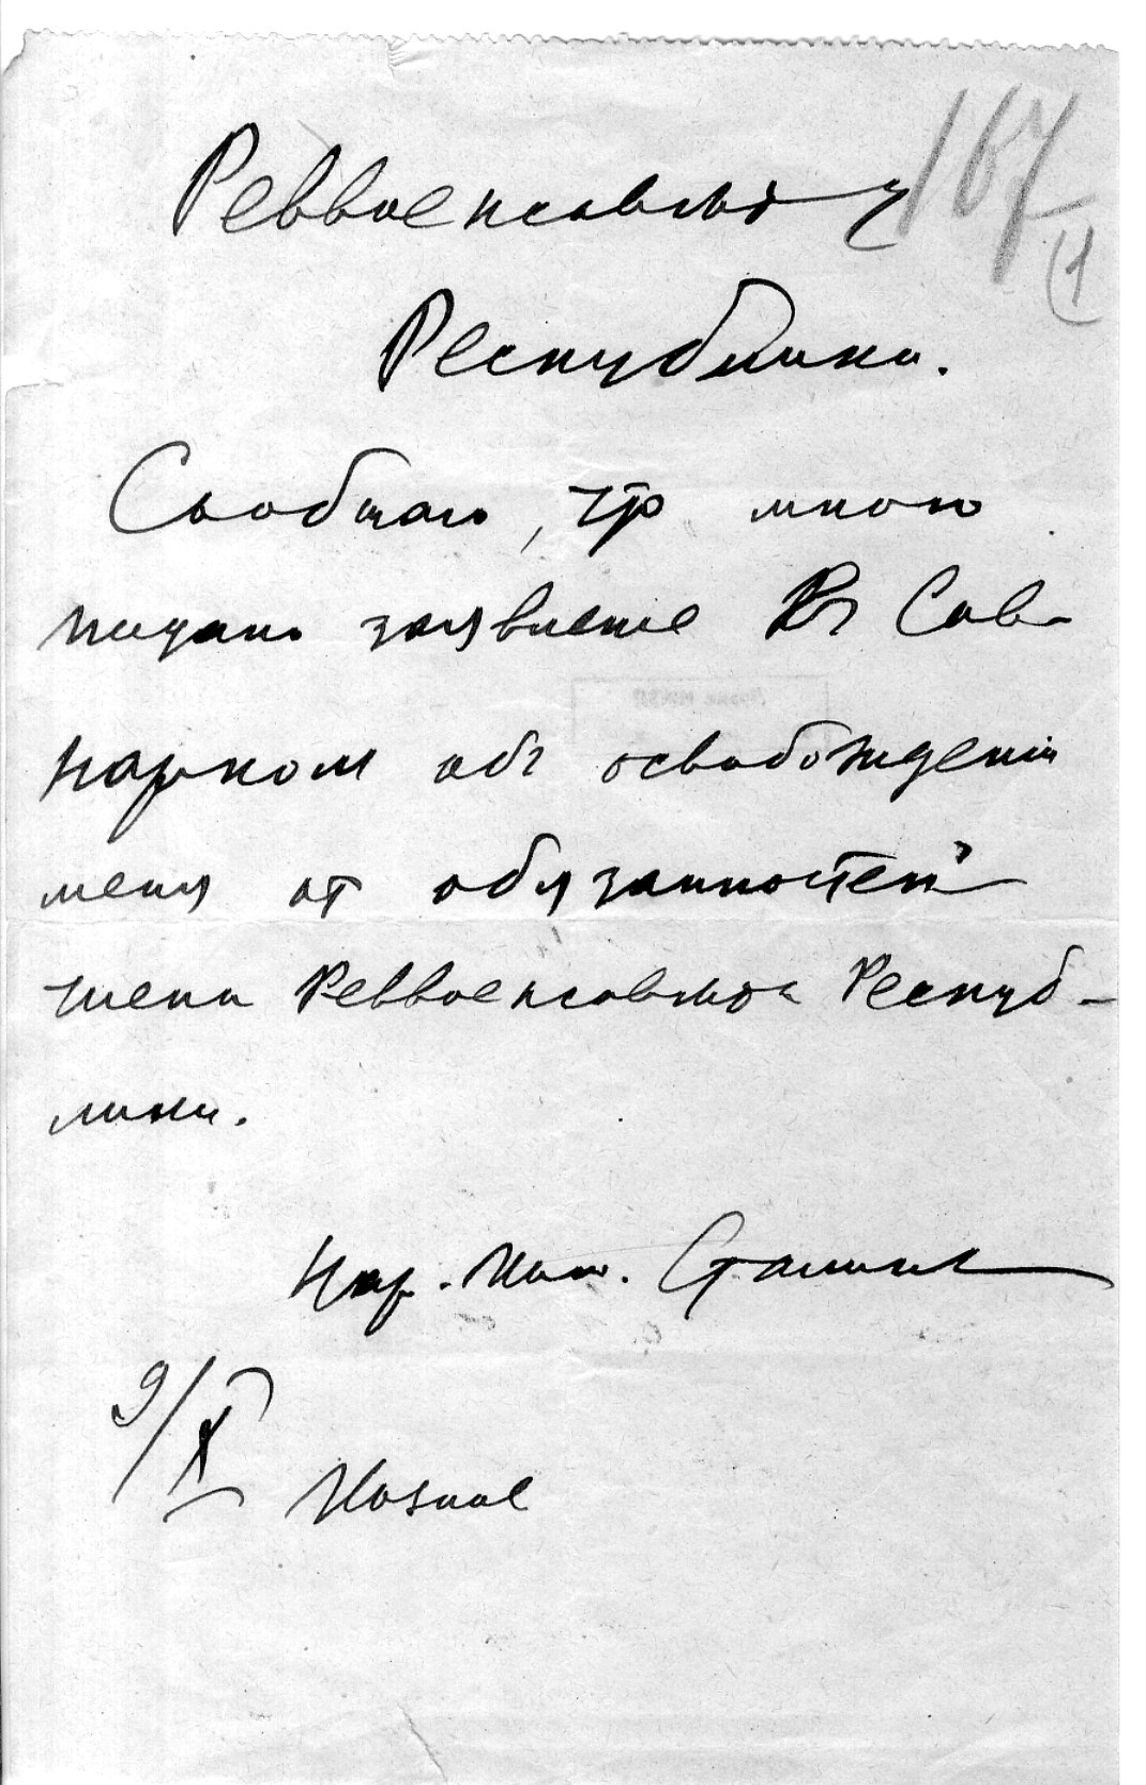 167
(1
Реввоенсовету
Республики.
Сообщаю, что мною
подано заявление в Сов-
нарком об освобожденiи
меня от обязанностей
члена Реввоенсовета Респуб-
лики.
Нар. Ком. Сталин
9/X